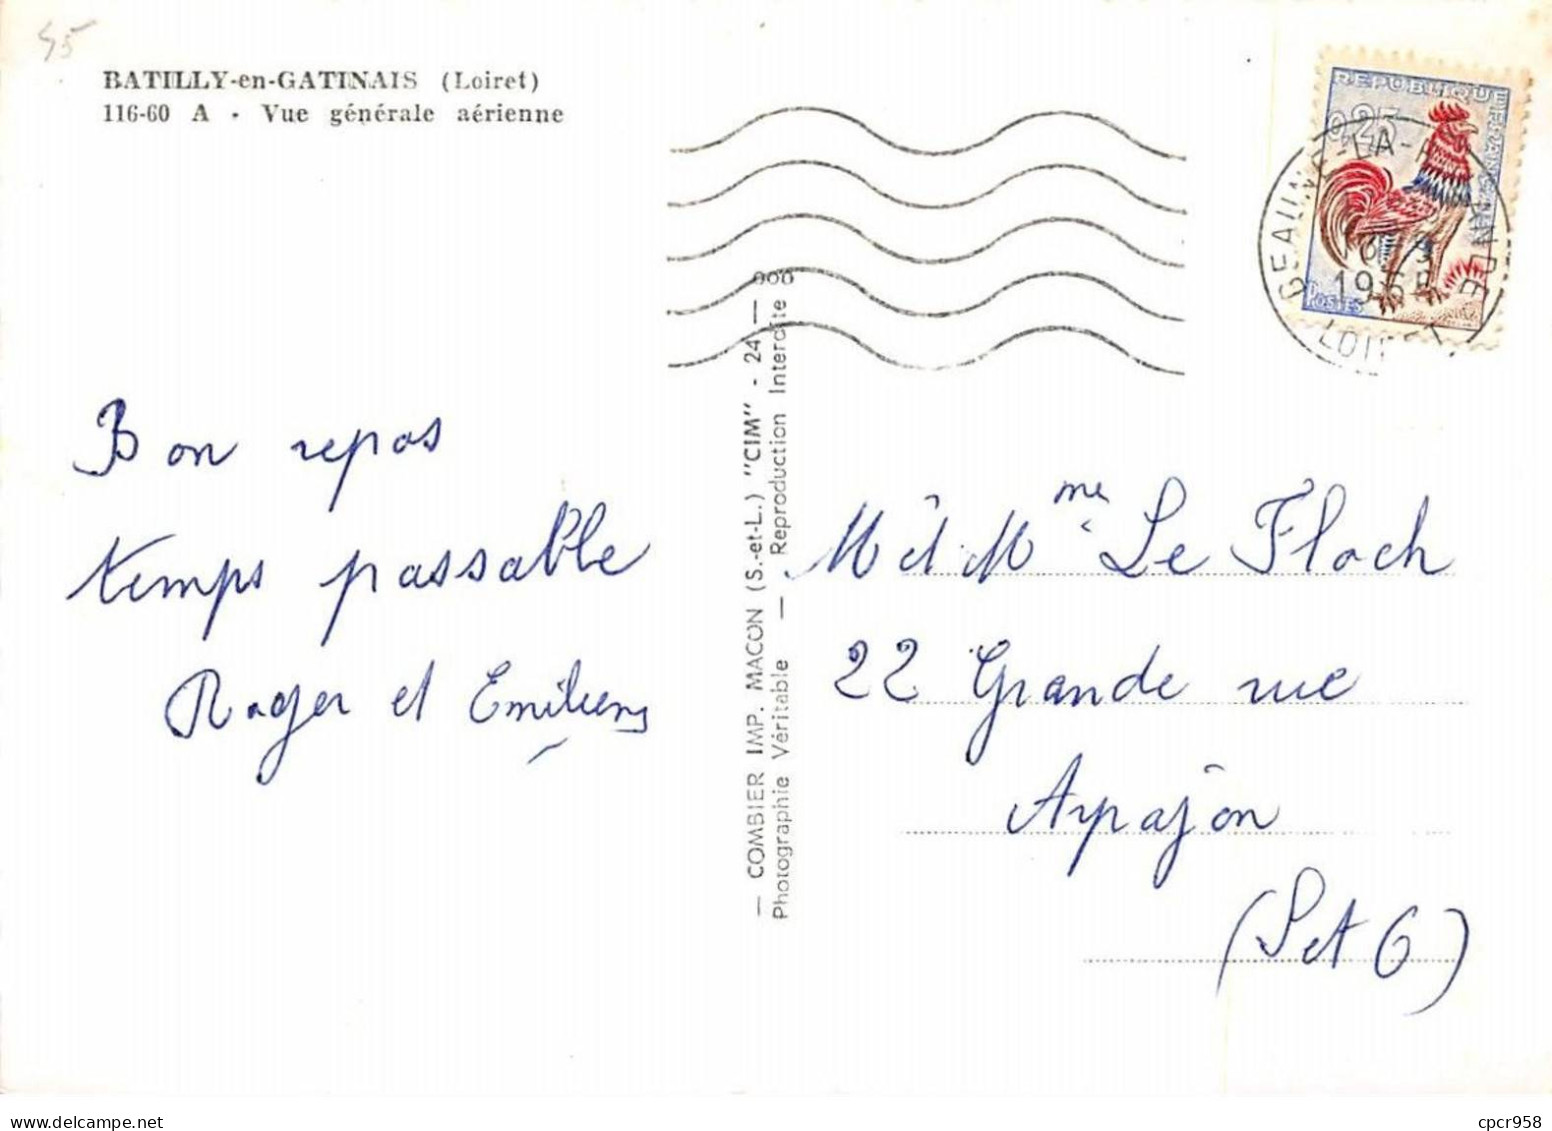 45
BATILLY-en-GATINAIS (Loiret)
116-60 A - Vue générale aérienne
REPUBLIQUE FRANCAISE
0,25
POSTES
BEAUNE-LA-ROLANDE
1965
LOIRET
Bon repos
temps passable
Roger et Emilienne
— COMBIER IMP. MACON (S.-et-L.) "CIM" - 24 —
Photographie Véritable — Reproduction Interdite
M et Mme Le Floch
22 Grande rue
Arpajon
(S et O)
cpcr958